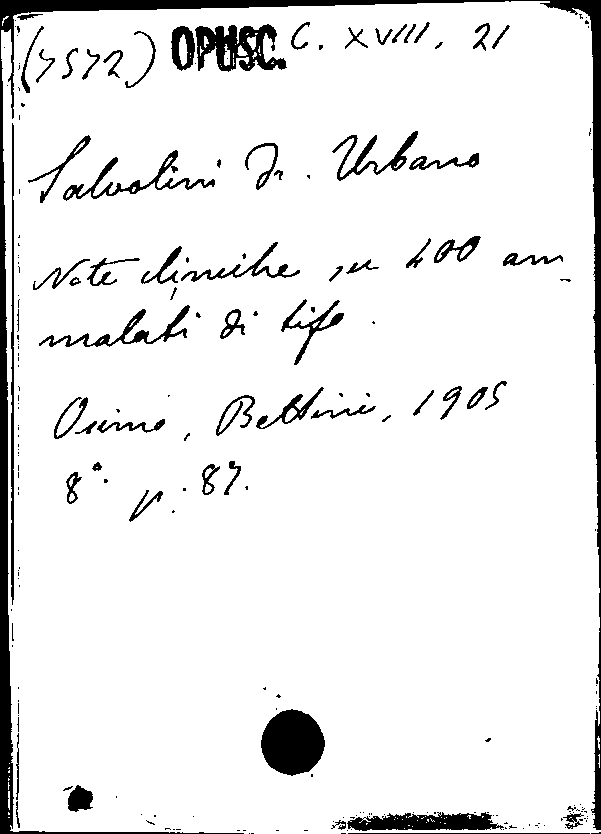 (7572) OPUSC. C. XVIII. 21
Salvolini Dr. Urbano
Note cliniche su 400 am_
malati di tifo.
Osimo, Bellini, 1905
8°. p. 87.